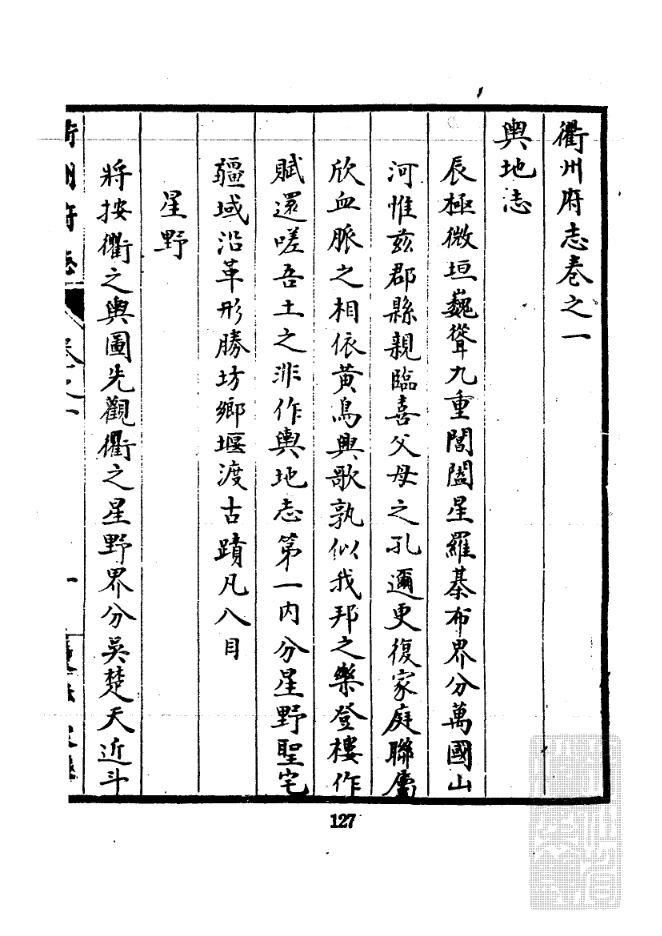 衢州府志卷之一
輿地志
辰極微垣巍聳九重閶闔星羅棊布界分萬國山
河惟茲郡縣親臨喜父母之孔邇更復家庭聯屬
欣血脈之相依黃鳥興歌孰似我邦之樂登樓作
賦還嗟吾土之非作輿地志第一內分星野聖宅
疆域沿革形勝坊鄉堰渡古蹟凡八目
星野
將按衢之輿圖先觀衢之星野界分吳楚天近斗
衢州府志 卷之一 一
127